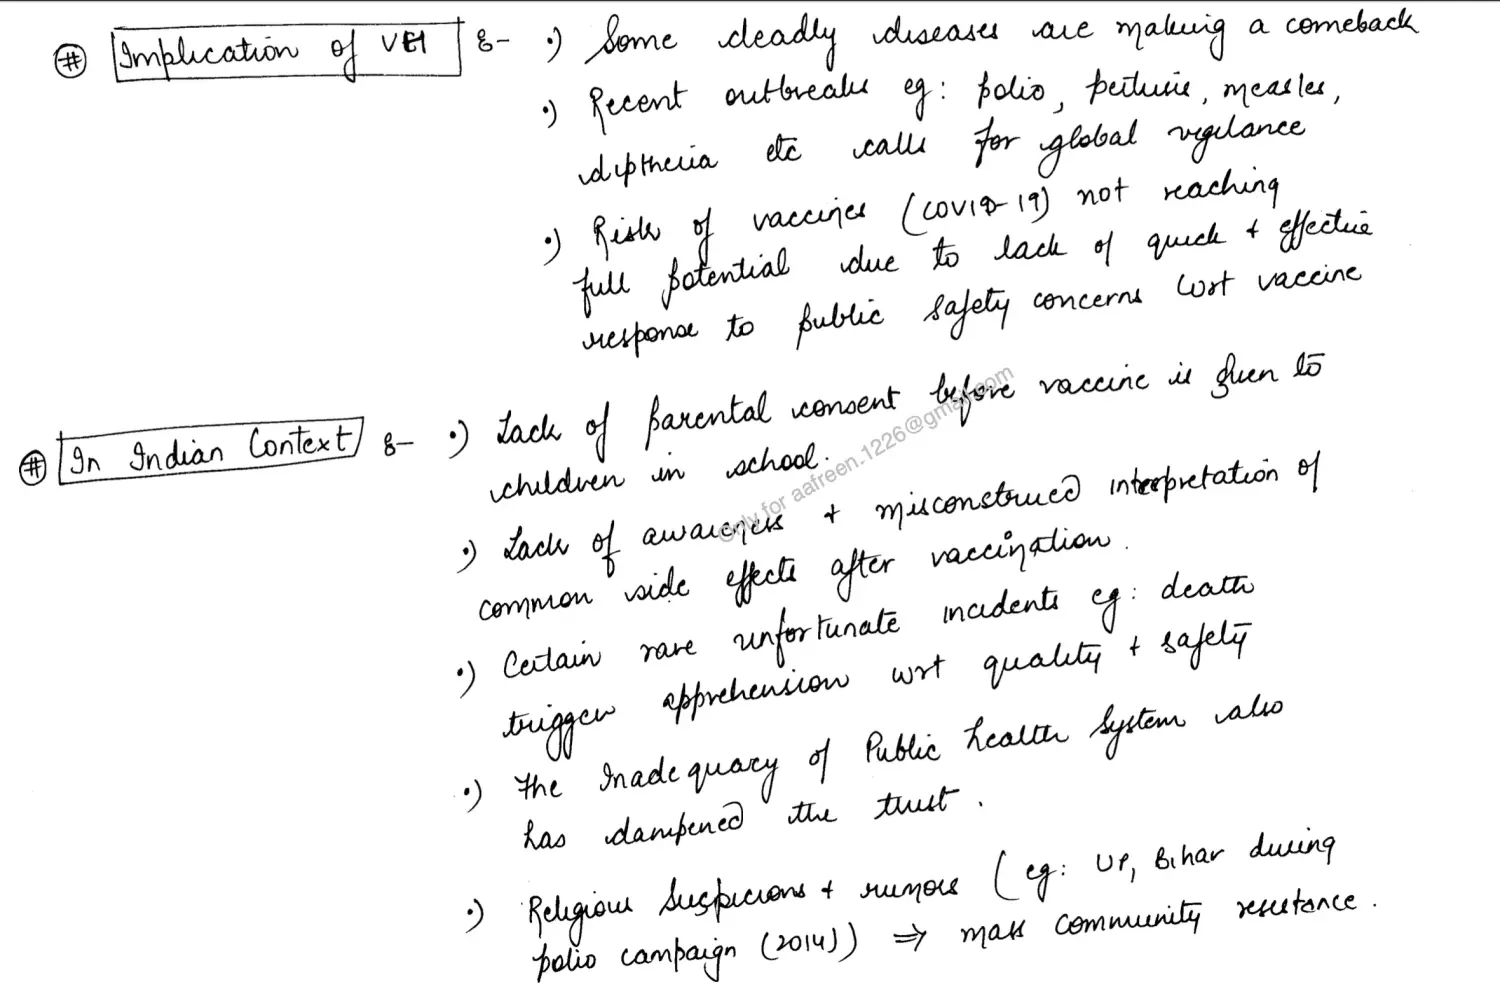 # Implication of VEH :- •) Some deadly diseases are making a comeback
•) Recent outbreaks eg: polio, pertusis, measles,
diptheria etc calls for global vigilance
•) Risk of vaccines (COVID-19) not reaching
full potential due to lack of quick + effective
response to public safety concerns wrt vaccine
# In Indian Context :- •) Lack of parental consent before vaccine is given to
children in school.
•) Lack of awareness + misconstrued interpretation of
common side effects after vaccination.
•) Certain rare unfortunate incidents eg: death
trigger apprehension wrt quality + safety
•) The Inadequacy of Public health system also
has dampened the trust.
•) Religious suspicions + rumors (eg: UP, Bihar during
polio campaign (2014)) ⇒ mass community resistance.
Only for aafreen.1226@gmail.com